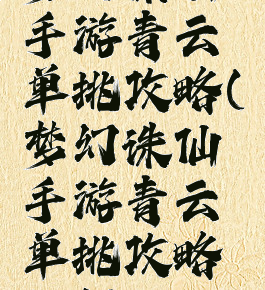 手游青云
单挑攻略(
梦幻诛仙
手游青云
单挑攻略